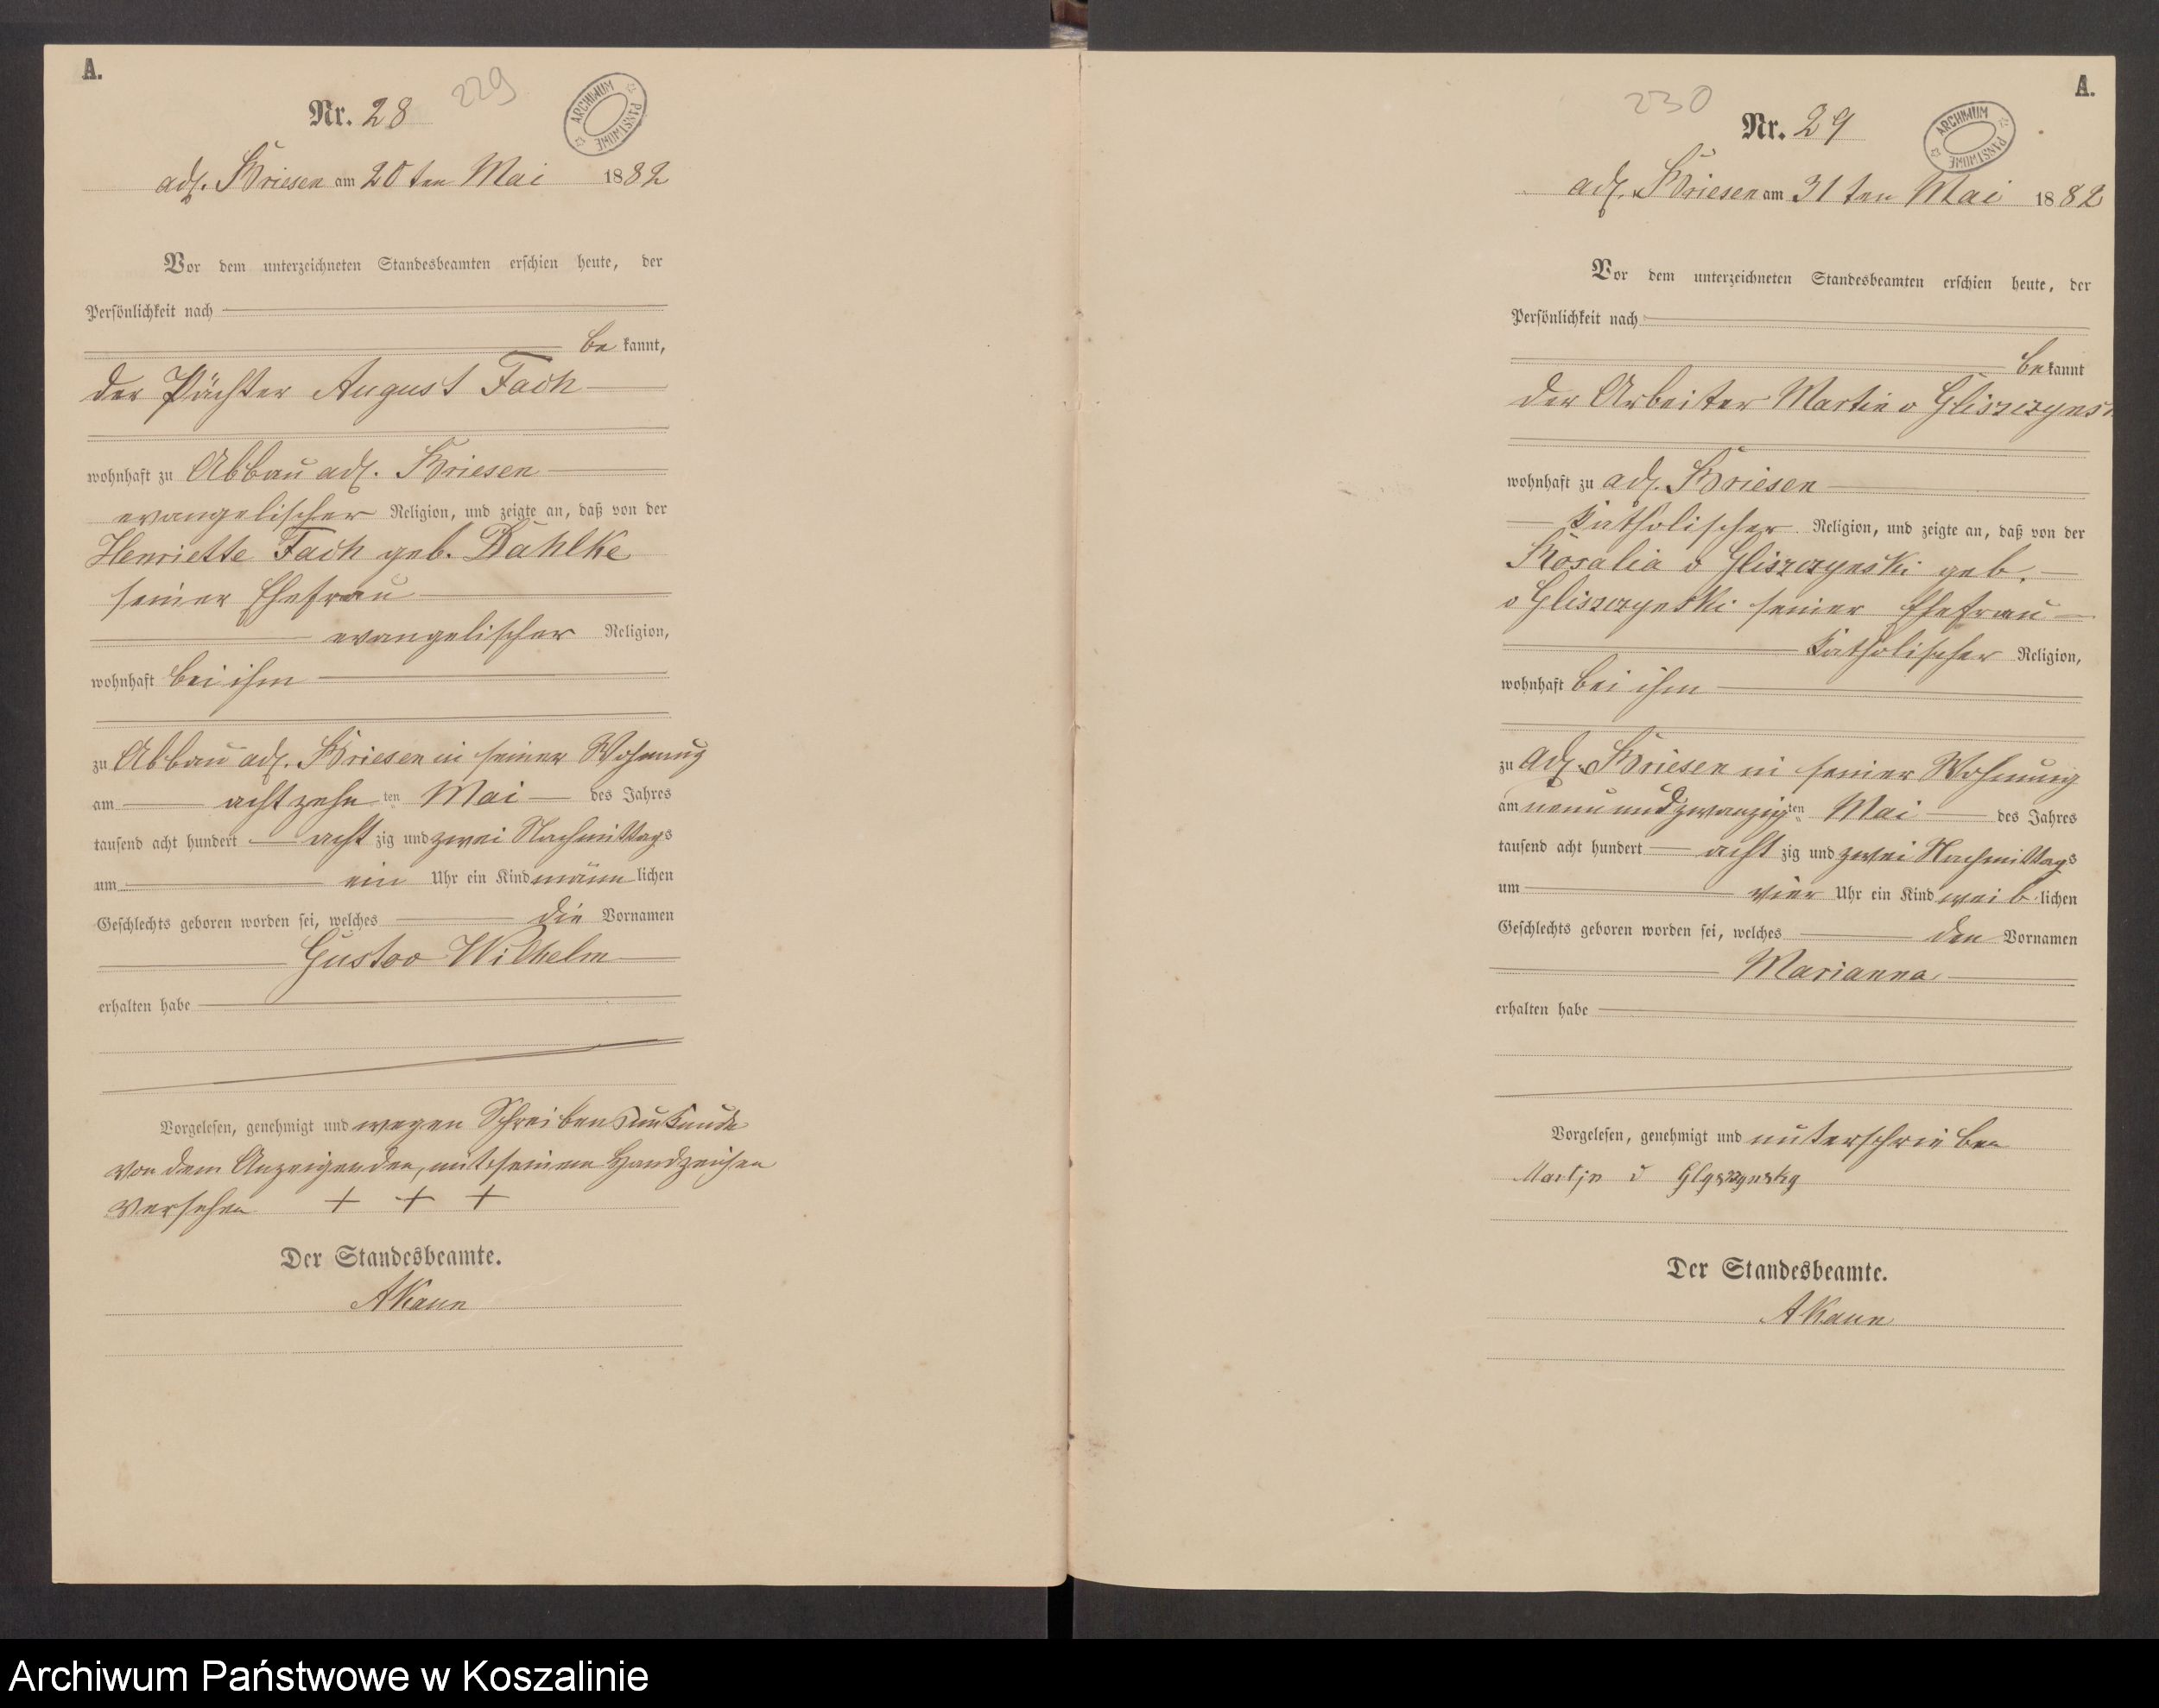 A.
229
Nr. 28
ARCHIWUM PAŃSTWOWE
adl. Briesen am 20ten Mai 1882
Vor dem unterzeichneten Standesbeamten erschien heute, der
Persönlichkeit nach
be kannt,
der Pächter August Fach
wohnhaft zu Abbau adl. Briesen
evangelischer Religion, und zeigte an, daß von der
Henriette Fach geb. Dahlke
seiner Ehefrau
evangelischer Religion,
wohnhaft bei ihm
zu Abbau adl. Briesen in seiner Wohnung
am achtzehn ten Mai des Jahres
tausend acht hundert acht zig und zwei Nachmittags
um ein Uhr ein Kind männ lichen
Geschlechts geboren worden sei, welches die Vornamen
Gustav Wilhelm
erhalten habe
Vorgelesen, genehmigt und wegen Schreibensunkunde
von dem Anzeigenden, mit seinem Handzeichen
versehen + + +
Der Standesbeamte.
AKaun
A.
230
Nr. 29
ARCHIWUM PAŃSTWOWE
adl. Briesen am 31ten Mai 1882
Vor dem unterzeichneten Standesbeamten erschien heute, der
Persönlichkeit nach
be kannt
der Arbeiter Martin v Gliszczynski
wohnhaft zu adl. Briesen
katholischer Religion, und zeigte an, daß von der
Rosalia v Gliszczynski geb.
v Gliszczynski seiner Ehefrau
katholischer Religion,
wohnhaft bei ihm
zu adl. Briesen in seiner Wohnung
am neunundzwanzig ten Mai des Jahres
tausend acht hundert acht zig und zwei Nachmittags
um vier Uhr ein Kind weib lichen
Geschlechts geboren worden sei, welches den Vornamen
Marianna
erhalten habe
Vorgelesen, genehmigt und unterschrieben
Martjn v Glyszzynsky
Der Standesbeamte.
AKaun
Archiwum Państwowe w Koszalinie